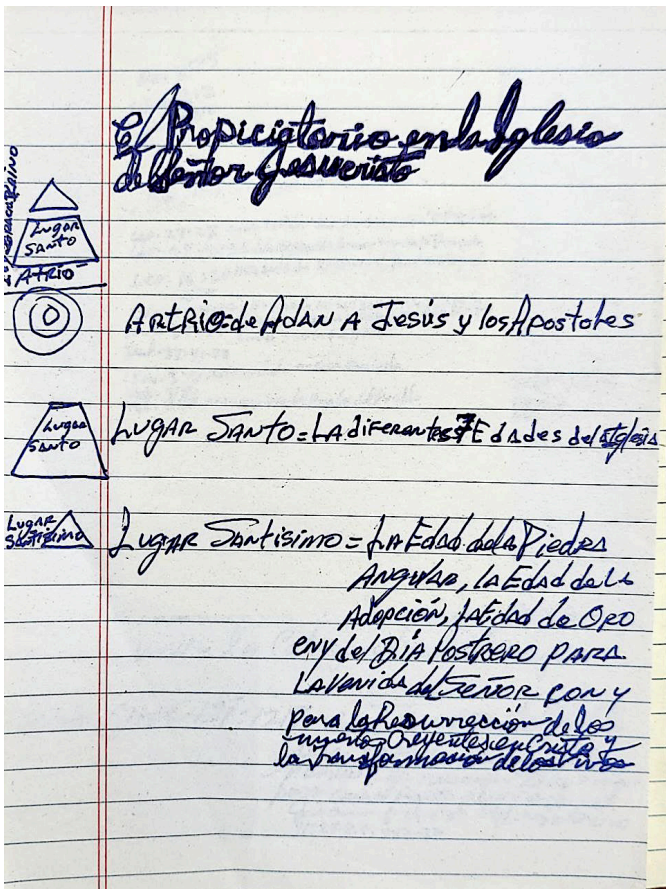 El Propiciatorio en la Iglesia
del Señor Jesucristo
Lugar
Santo
Atrio
Artrio=de Adan A Jesús y los Apostoles
Lugar
Santo
Lugar Santo=LA diferentes 7 Edades de la Iglesia
Lugar
Santisimo
Lugar Santisimo=La Edad de la Piedra
Angular, la Edad de la
Adopción, la Edad de Oro
en y del Día Postrero para
La Venida del Señor con y
para la Resurrección de los
muertos Creyentes en Cristo y
la transformación de los vivos